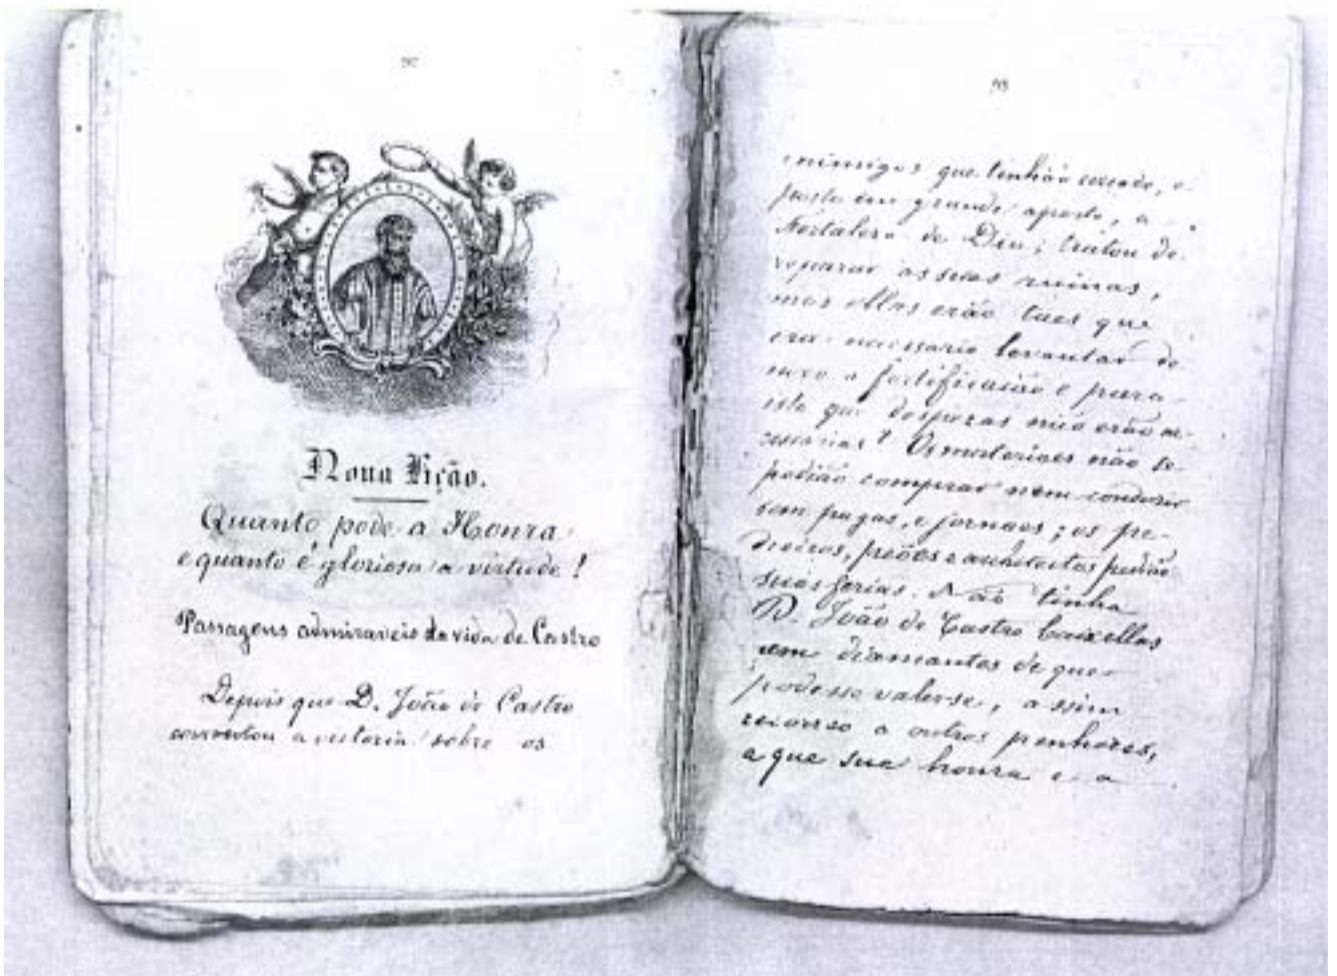 Nova Lição.
Quanto pode a Honra
e quanto é gloriosa a virtude!
Passagens admiraveis da vida de Castro
Depois que D. João de Castro
a victoria sobre os
inimigos que tinhão cercado, e
posto em grande aperto, a
Fortaleza de Diu; tratou de
reparar as suas ruinas,
mas ellas erão taes que
era necessario levantar de
novo a fortificação e para
isto que despezas não erão ne-
cessarias? Os materiaes não se
podião comprar nem conduzir
sem pagas, e jornaes; os pe-
dreiros, peões e architectos pedião
suas ferias. Não tinha
D. João de Castro baixellas
nem diamantes de que
podesse valer-se, assim
a outros penhores,
a que sua honra e a